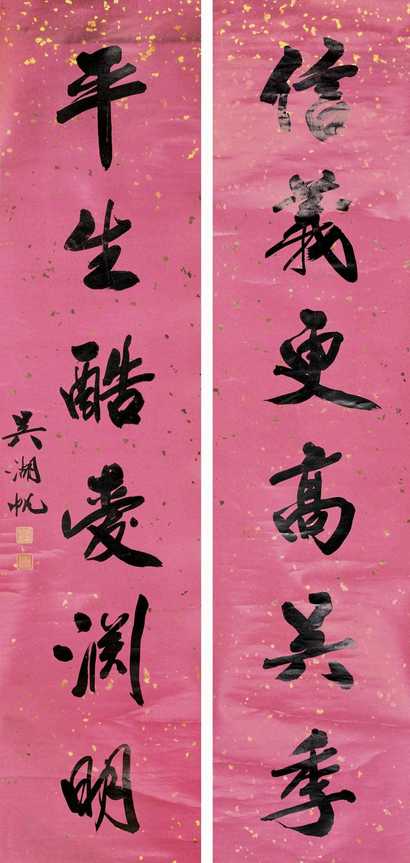 信義更高吴季
平生酷愛渊明
吴湖帆